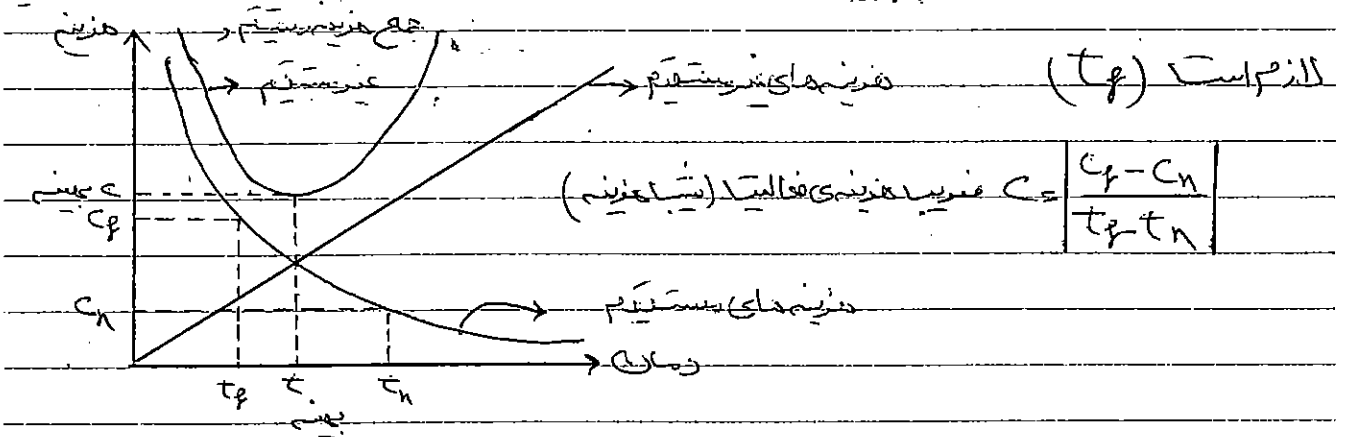 هزینه
جمع هزینه مستقیم و
غیر مستقیم
هزینه‌های غیر مستقیم
لازم است (t_f)
c بهینه
C_f
ضریب هزینه‌ی فعالیت (شیب هزینه) C = |(C_f - C_n) / (t_f - t_n)|
C_n
هزینه‌های مستقیم
زمان
t_f t t_n
بهینه